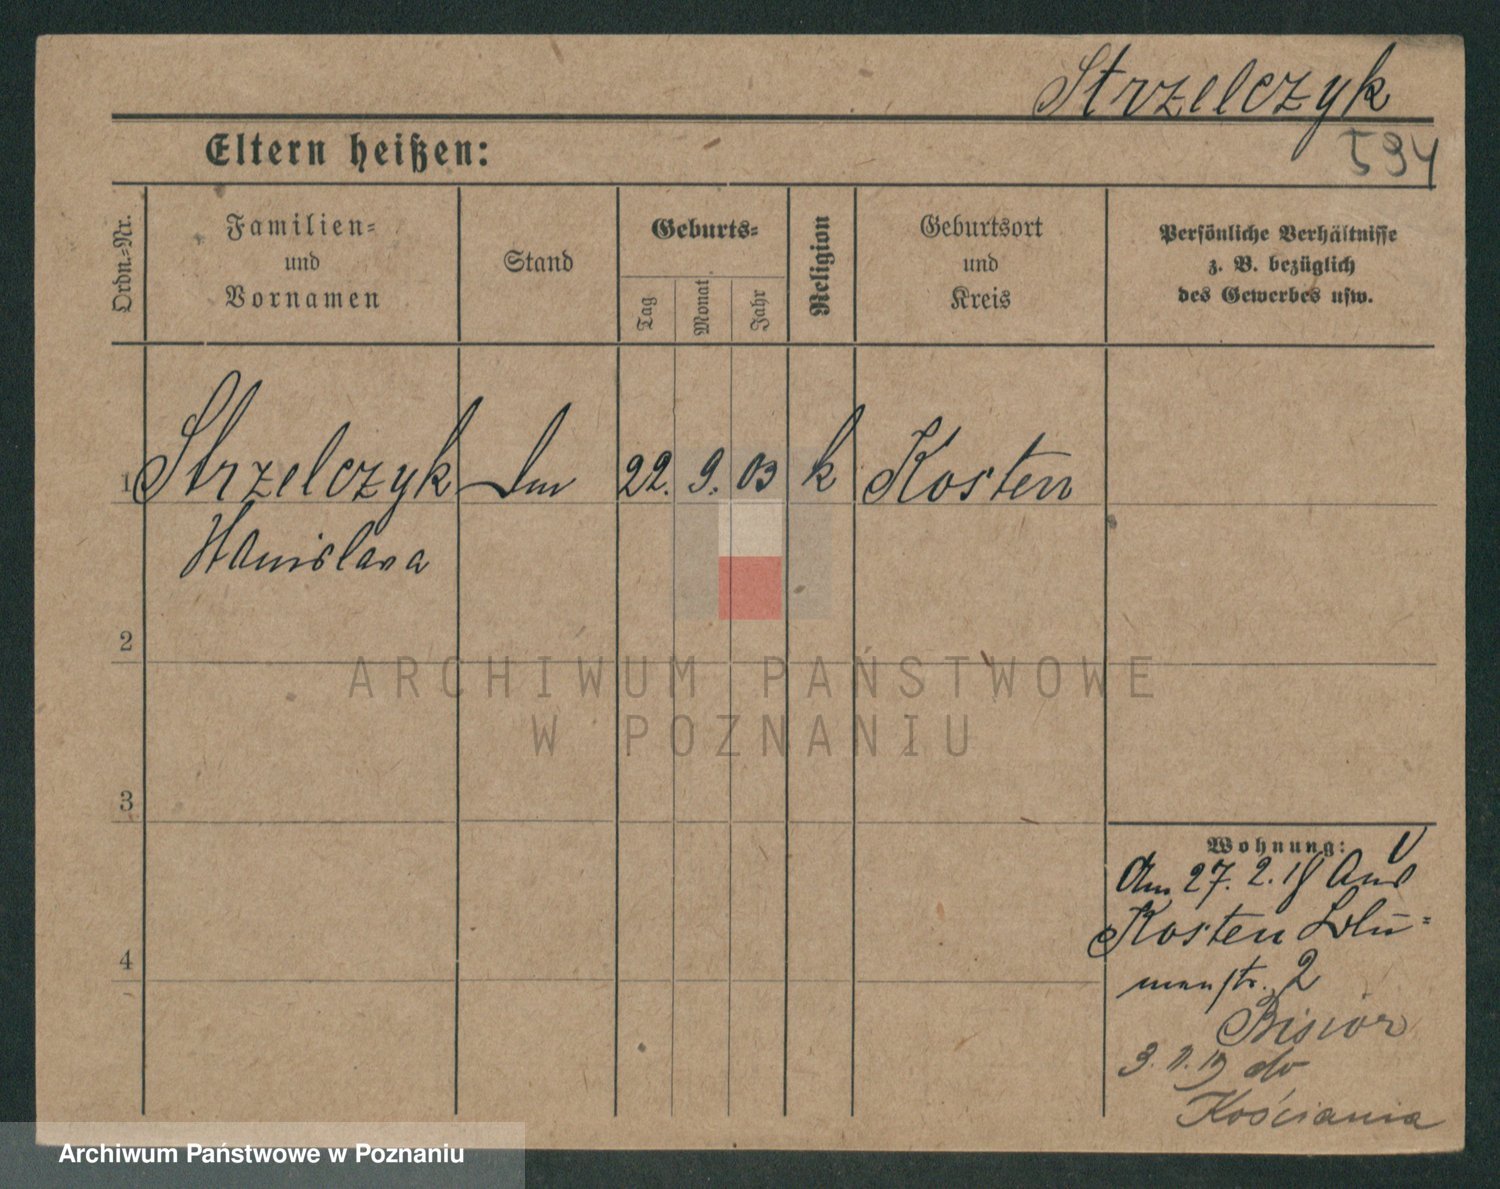 Strzelczyk
594
Eltern heißen:
Ordn.-Nr.
Familien-
und
Vornamen
Stand
Geburts-
Tag
Monat
Jahr
Religion
Geburtsort
und
Kreis
Persönliche Verhältnisse
z. B. bezüglich
des Gewerbes usw.
1 Strzelczyk 22. 9. 03 k Kosten
Stanislava
2
3
4
ARCHIWUM PAŃSTWOWE
W POZNANIU
Wohnung:
Am 27. 2. 18 Aus
Kosten Blu-
menstr. 2
Bisior
do
Kościana
Archiwum Państwowe w Poznaniu